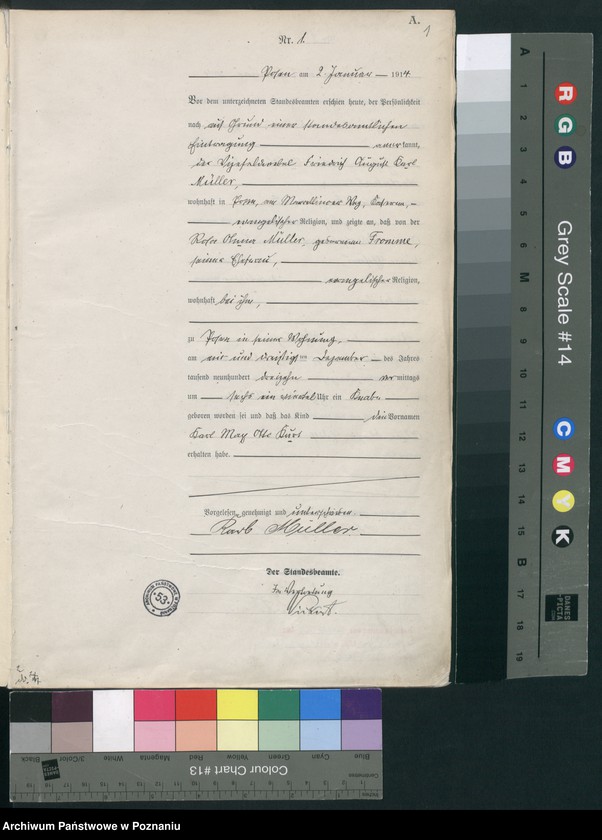 A.
1
Nr. 1.
Posen am 2. Januar 1914
Vor dem unterzeichneten Standesbeamten erschien heute, der Persönlichkeit
nach auf Grund einer standesamtlichen
Eintragung anerkannt,
der Vizefeldwebel Friedrich August Karl
Müller,
wohnhaft in Posen, am Marcelliner Weg, Kaserne,
evangelischer Religion, und zeigte an, daß von der
Müller, geborenen Fromme,
seiner Ehefrau,
evangelischer Religion,
wohnhaft bei ihm,
zu Posen in seiner Wohnung,
am ein und dreißigsten Dezember des Jahres
tausend neunhundert dreizehn vormittags
um sechs ein viertel Uhr ein Knabe
geboren worden sei und daß das Kind die Vornamen
Karl Max Otto Kurt
erhalten habe.
Vorgelesen, genehmigt und unterschrieben
Karl Müller
Der Standesbeamte.
In Vertretung
53
Grey Scale #14
A 1 2 3 4 5 6 M 8 9 10 11 12 13 14 15 B 17 18 19
R G B
C M Y K
DANES-PICTA
Colour Chart #13
Blue Cyan Green Yellow Red Magenta White 3/Color Black
Archiwum Państwowe w Poznaniu